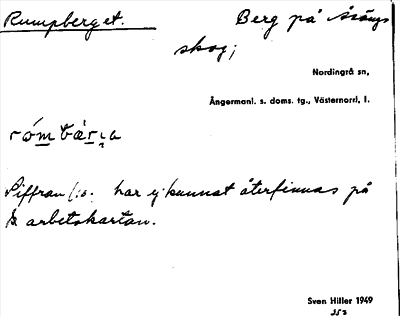 Rumpberget. Berg på Näängs
skog;
Nordingrå sn,
Ångermanl. s. doms. tg., Västernorrl. l.
Siffran har ej kunnat återfinnas på
arbetskartan.
Sven Hiller 1949